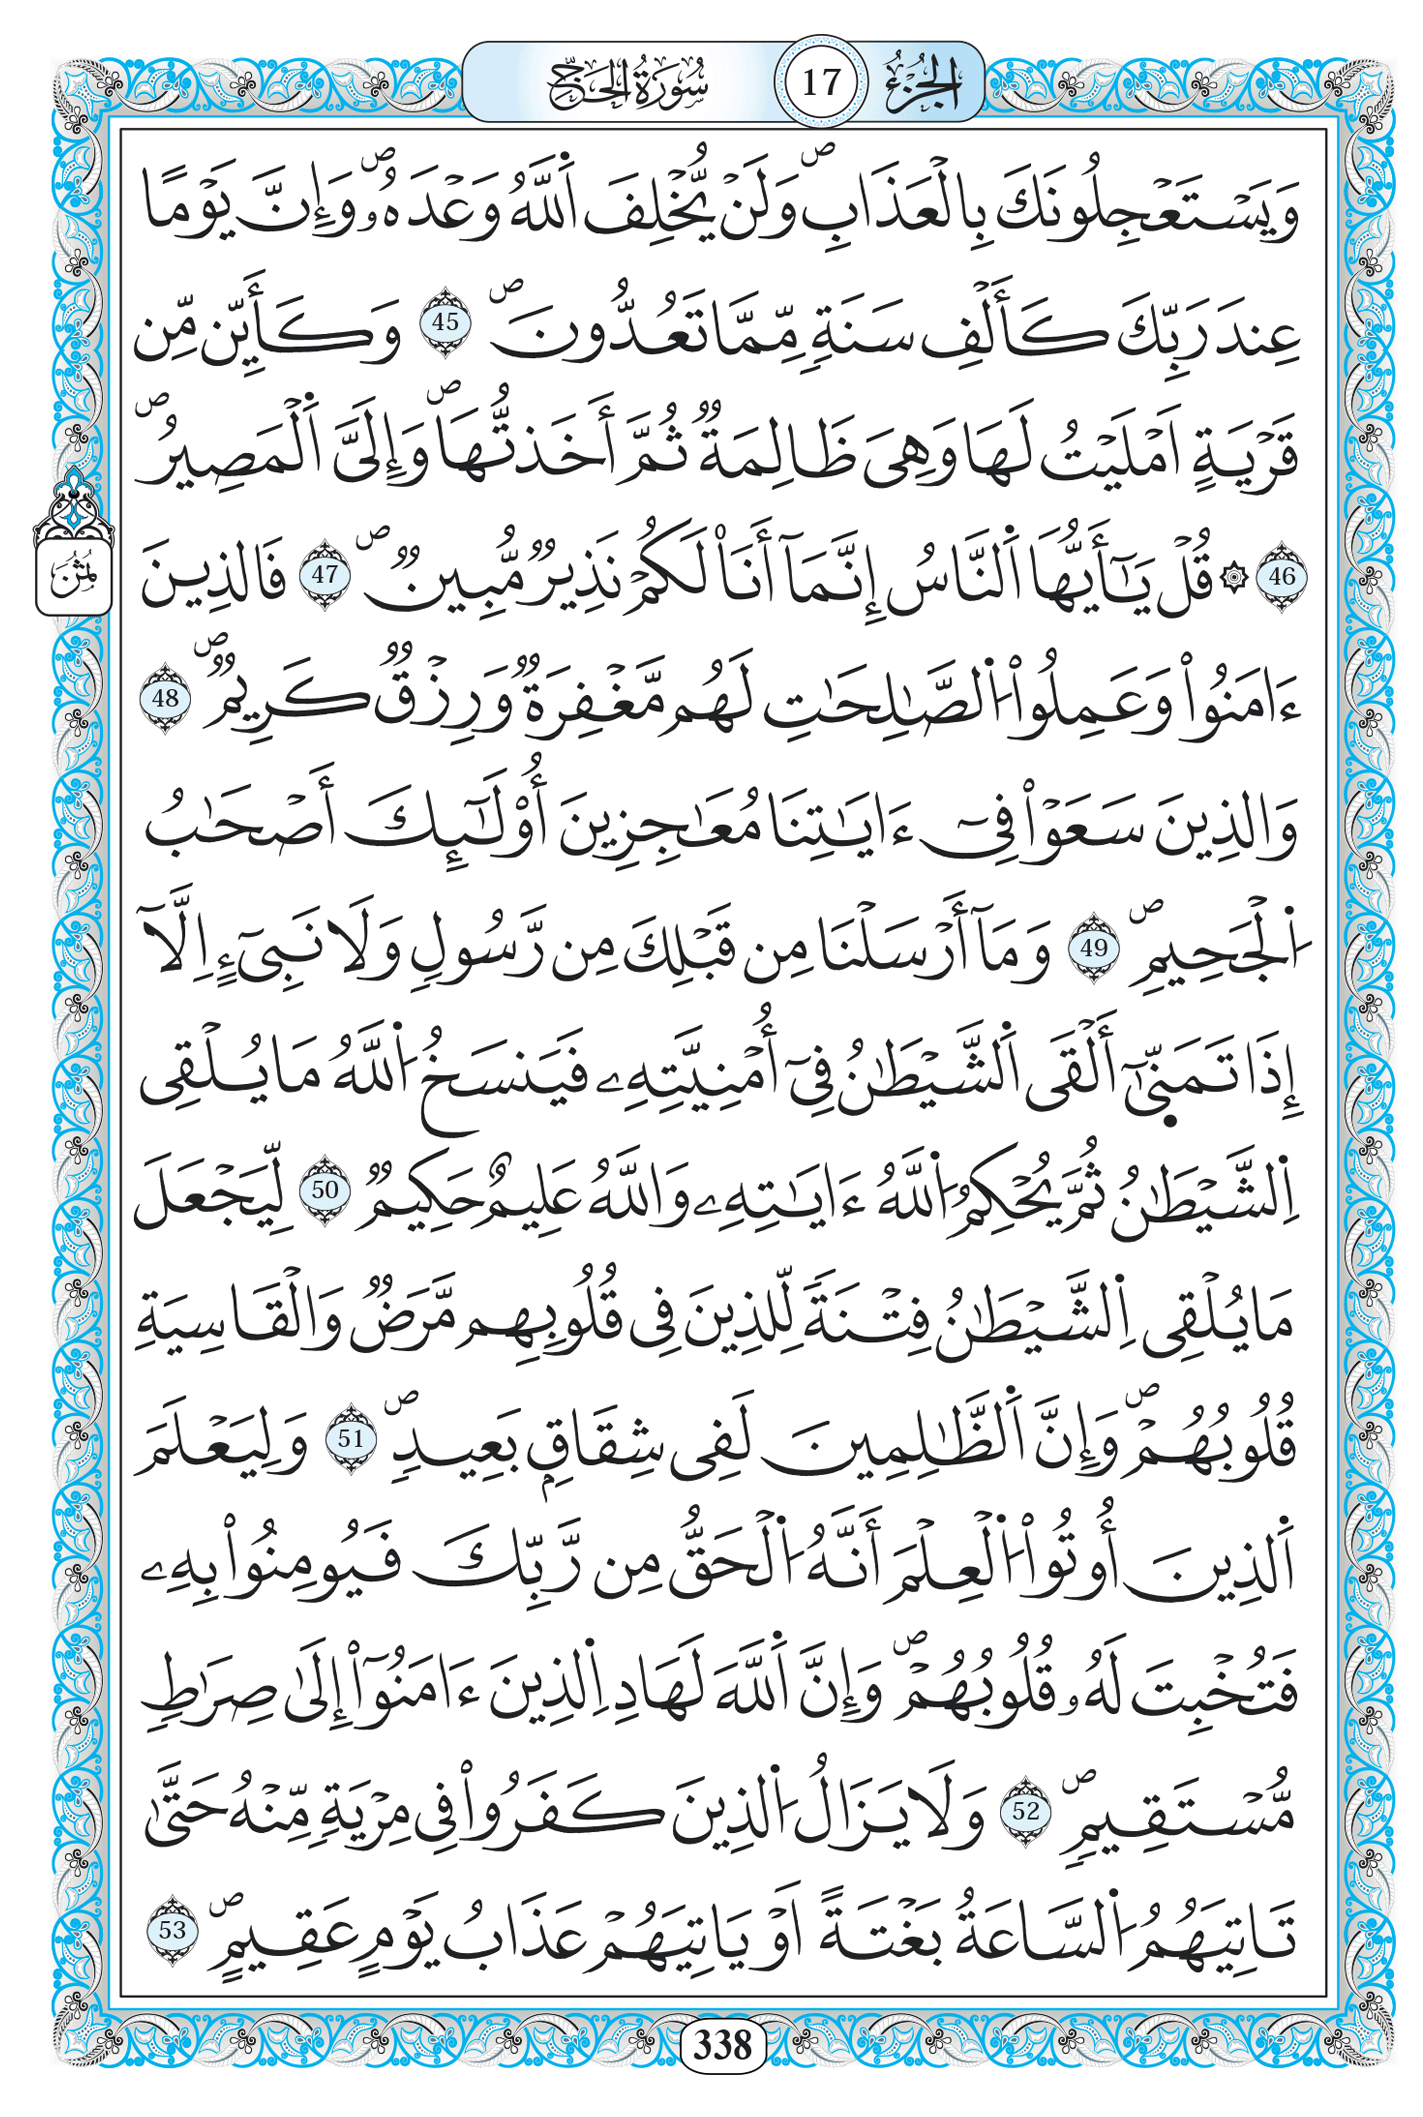 الجُزْءُ 17 سُورَةُ الحَجِّ
وَيَسْتَعْجِلُونَكَ بِالْعَذَابِۖ وَلَنْ يُّخْلِفَ اَ۬للَّهُ وَعْدَهُۥۖ وَإِنَّ يَوْمًا
عِندَ رَبِّكَ كَأَلْفِ سَنَةٖ مِّمَّا تَعُدُّونَۖ 45 وَكَأَيِّن مِّن
قَرْيَةٍ اَمْلَيْتُ لَهَا وَهِيَ ظَالِمَةٞ ثُمَّ أَخَذتُّهَاۖ وَإِلَيَّ اَ۬لْمَصِيرُۖ
46 ۞ قُلْ يَٰٓأَيُّهَا اَ۬لنَّاسُ إِنَّمَآ أَنَا۠ لَكُمْ نَذِيرٞ مُّبِينٞۖ 47 فَالذِينَ
ءَامَنُواْ وَعَمِلُواْ اُ۬لصَّٰلِحَٰتِ لَهُم مَّغْفِرَةٞ وَرِزْقٞ كَرِيمٞۖ 48
وَالذِينَ سَعَوْاْ فِيٓ ءَايَٰتِنَا مُعَٰجِزِينَ أُوْلَٰٓئِكَ أَصْحَٰبُ
اُ۬لْجَحِيمِۖ 49 وَمَآ أَرْسَلْنَا مِن قَبْلِكَ مِن رَّسُولٖ وَلَا نَبِيٓءٍ اِلَّآ
إِذَا تَمَنّ۪يٰٓ أَلْقَى اَ۬لشَّيْطَٰنُ فِيٓ أُمْنِيَّتِهِۦ فَيَنسَخُ اُ۬للَّهُ مَا يُلْقِي
اِ۬لشَّيْطَٰنُ ثُمَّ يُحْكِمُ اُ۬للَّهُ ءَايَٰتِهِۦ وَاللَّهُ عَلِيمٌ حَكِيمٞ 50 لِّيَجْعَلَ
مَا يُلْقِي اِ۬لشَّيْطَٰنُ فِتْنَةٗ لِّلذِينَ فِي قُلُوبِهِم مَّرَضٞ وَالْقَاسِيَةِ
قُلُوبُهُمْۖ وَإِنَّ اَ۬لظَّٰلِمِينَ لَفِي شِقَاقِۢ بَعِيدٖۖ 51 وَلِيَعْلَمَ
اَ۬لذِينَ أُوتُواْ اُ۬لْعِلْمَ أَنَّهُ اُ۬لْحَقُّ مِن رَّبِّكَ فَيُومِنُواْ بِهِۦ
فَتُخْبِتَ لَهُۥ قُلُوبُهُمْۖ وَإِنَّ اَ۬للَّهَ لَهَادِ اِ۬لذِينَ ءَامَنُوٓاْ إِلَىٰ صِرَٰطٖ
مُّسْتَقِيمٖۖ 52 وَلَا يَزَالُ اُ۬لذِينَ كَفَرُواْ فِي مِرْيَةٖ مِّنْهُ حَتَّىٰ
تَاتِيَهُمُ اُ۬لسَّاعَةُ بَغْتَةً اَوْ يَاتِيَهُمْ عَذَابُ يَوْمٍ عَقِيمٍۖ 53
ثُمُنٌ
338